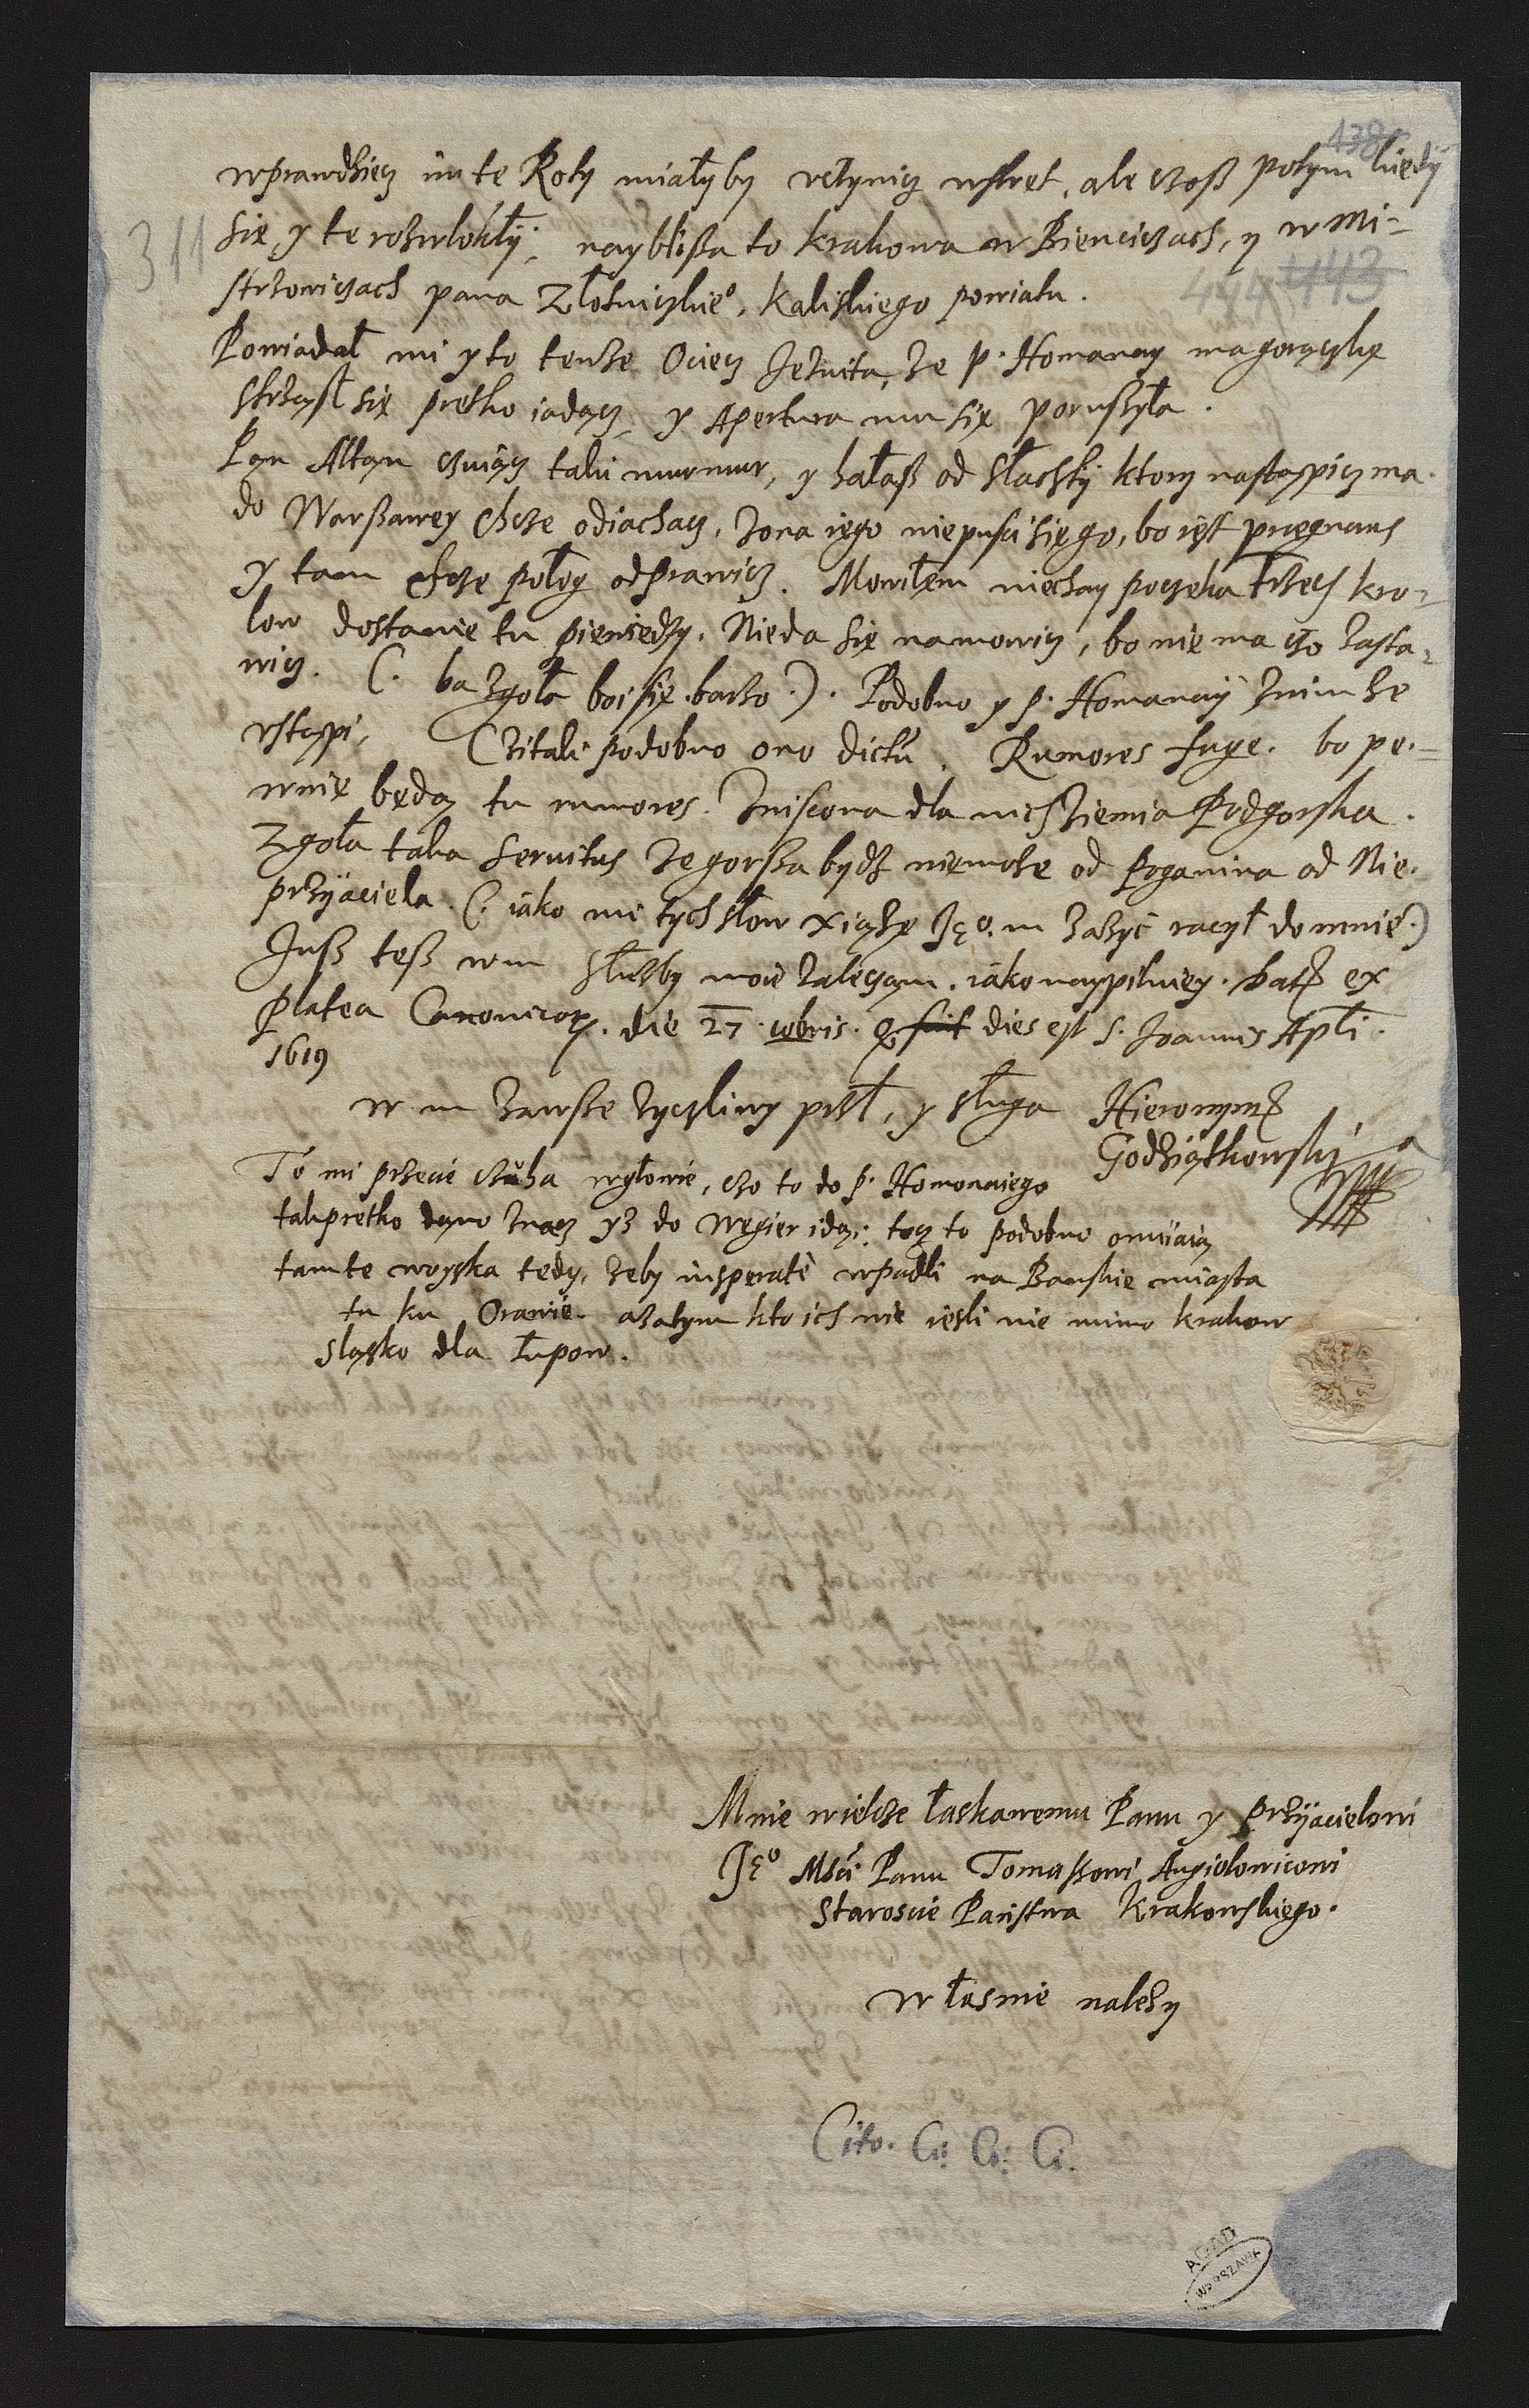 138
wprawdziecz im te Roty miałyby uczynicz wstręt, ale czoß potym kiedy
się y te rozwlokły; nayblißa to Krakowa w Bienczicach, y w Mi-
strzowiczach pana Złotniczkie°, Kaliskiego powiatu.
311
444 443
Powiadał mi y to tenze Ociecz Jezuita, ze p. Homanay ma gorączkę
strząsł się prętko iadącz, y Apertura mu się poruszyła.
Pan Altan czuiącz taki murmur, y hałaß od Slachty ktory nastąpicz ma
do Warßawey chcze odiachacz, zona iego nie pusci się go, bo iest pregnans
y tam chcze połog odprawicz. Mowiłem niechay poczeka trzech kro-
low dostanie tu pieniedzy. Nie da się namowicz, bo nie ma czo zasta-
wicz. (. ba zgoła boi się barzo .). Podobno y p. Homanay znim ze
ustąpi, Czitali podobno ono dictū. Rumores fuge. bo pe-
wnie będą tu rumores. Zniscona dla nich Ziemia Podgorska.
Zgoła taka servitus ze gorßa bydz niemoze od Poganina od Nie-
przyiaciela. (. iako mi tych słow xiąze Je°. m zazyć racył do mnie .)
Juß teß wm służby moie zaleczam, iako naypilniey. Datz ex
Platea Canonicorz. die 27. xbris. q fuit dies est S. Joannis Apłi.
1619
w m zawsze zyczliwy przł, y sługa Hieronymz
Godziątkowski
To mi przecie czuha wgłowie, czo to do p. Homonaiego
tak prętko dano znacz yz do Węgier idą; tocz to podobno omiiaią
tamte woyska tedy, zeby insperatè wpadli na Banskie miasta
tu ku Oranie. a zatym kto ich wie iesli nie mimo Krakow
Sląsko dla Łupow.
Mnie wielcze łaskawemu Panu y przyiacielowi
Je° Mści Panu Tomaßowi Angielowiconi
Staroscie Państwa Krakowskiego.
Własnie nalezy
Cito. Ci: Ci: Ci.
AGAD
WARSZAWA